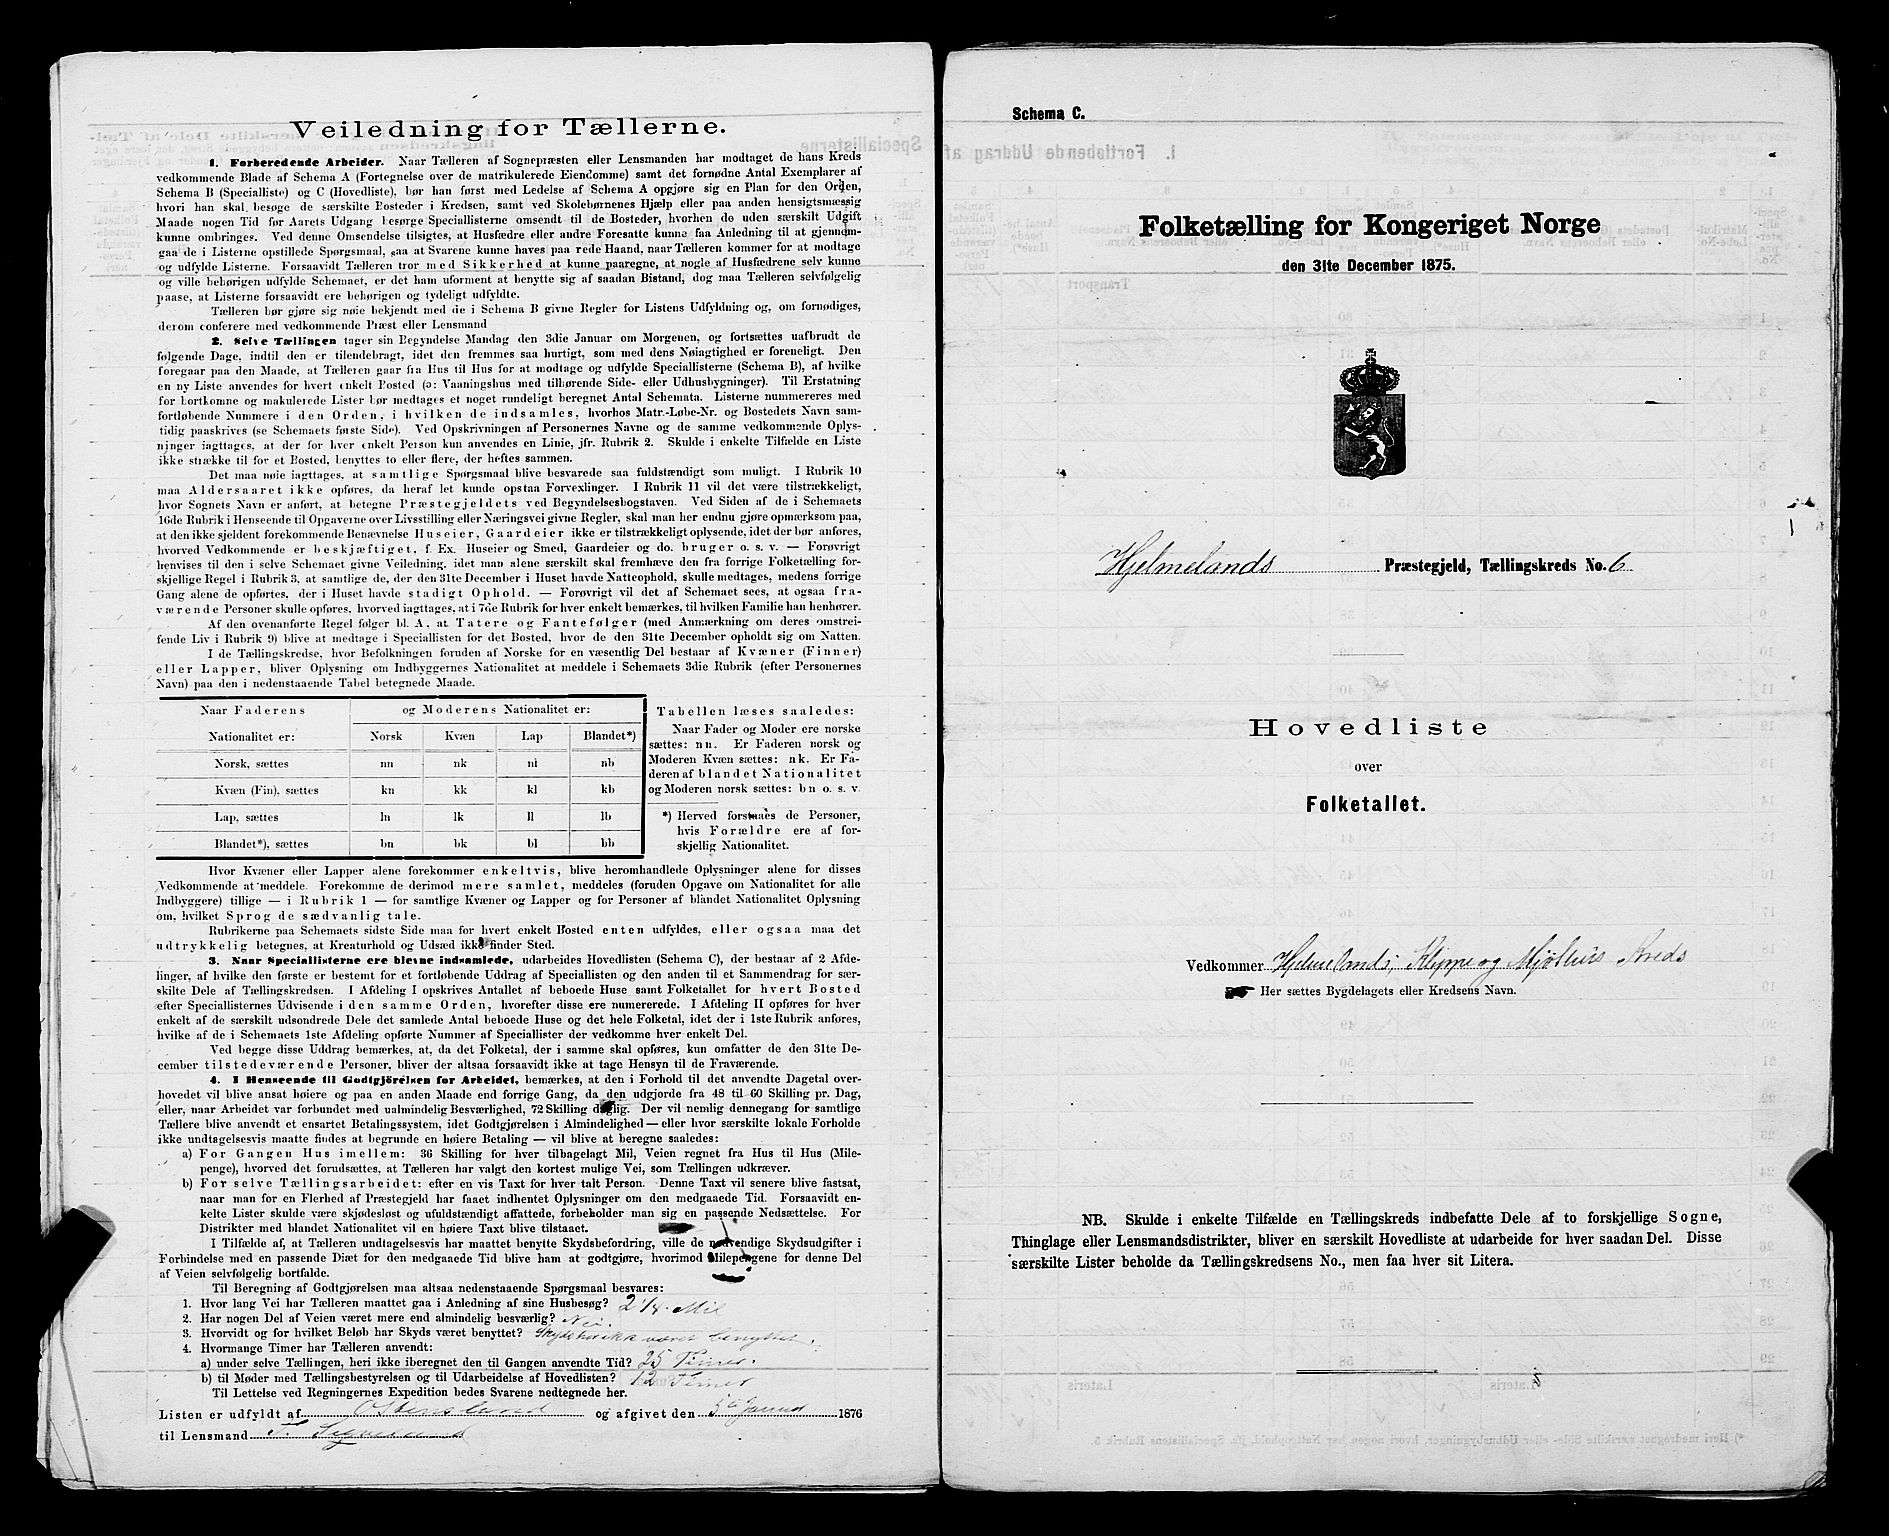 Veiledning for Tællerne.
1. Forberedende Arbeider. Naar Tælleren af Sognepræsten eller Lensmanden har modtaget de hans Kreds
vedkommende Blade af Schema A (Fortegnelse over de matrikulerede Eiendomme) samt det fornødne Antal Exemplarer af
Schema B (Specialliste) og C (Hovedliste), bør han først med Ledelse af Schema A opgjøre sig en Plan for den Orden,
hvori han skal besøge de særskilte Bosteder i Kredsen, samt ved Skolebørnenes Hjælp eller paa anden hensigtsmæssig
Maade nogen Tid før Aarets Udgang besørge Speciallisterne omsendt til de Bosteder, hvorhen de uden særskilt Udgift
kunne ombringes. Ved denne Omsendelse tilsigtes, at Husfædre eller andre Foresatte kunne faa Anledning til at gjennem-
gaa de i Listerne opstillede Spørgsmaal, gaa at Svarene kunne haves paa rede Haand, naar Tælleren kommer for at modtage
og udfylde Listerne. Forsaavidt Tælleren tror med Sikkerhed at kunne paaregne, at nogle af Husfædrene selv kunne
og ville behørigen udfylde Schemaet, er det ham uforment at benytte sig af saadan Bistand, dog maa Tælleren selvfølgelig
paase, at Listerne forsaavidt ere behørigen og tydeligt udfyldte.
Tælleren bør gjøre sig nøie bekjendt med de i Schema B givne Regler for Listens Udfyldning og, om fornødiges,
derom conferere med vedkommende Præst eller Lensmand
2. Selve Tællingen tager sin Begyndelse Mandag den 3die Januar om Morgenen, og fortsættes uafbrudt de
følgende Dage, indtil den er tilendebragt, idet den fremmes saa hurtigt, som med dens Nøiagtighed er foreneligt. Den
foregaar paa den Maade, at Tælleren gaar fra Hus til Hus for at modtage og udfylde Speciallisterne (Schema B), af hvilke
en ny Liste anvendes for hvert enkelt Bosted (ɔ: Vaaningshus med tilhørende Side- eller Udhusbygninger). Til Erstatning
for bortkomne og makulerede Lister bør medtages et noget rundeligt beregnet Antal Schemata. Listerne nummereres med
fortløbende Nummere i den Orden, i hvilken de indsamles, hvorhos Matr.-Løbe-Nr. og Bostedets Navn sam-
tidig paaskrives (se Schemaets første Side). Ved Opskrivningen af Personernes Navne og de samme vedkommende Oplys-
ninger iagttages, at der for hver enkelt Person kun anvendes en Linie, jfr. Rubrik 2. Skulde i enkelte Tilfælde en Liste
ikke strække til for et Bosted, benyttes to eller flere, der heftes sammen.
Det maa nøie iagttages, at samtlige Spørgsmaal blive besvarede saa fuldstændigt som muligt. I Rubrik 10
maa Aldersaaret ikke opføres, da heraf let kunde opstaa Forvexlinger. I Rubrik 11 vil det være tilstrækkeligt,
hvor Sognets Navn er anført, at betegne Præstegjeldets ved Begyndelsesbogstaven. Ved Siden af de i Schemaets
16de Rubrik i Henseende til Opgaverne over Livsstilling eller Næringsvei givne Regler, skal man her endnu gjøre opmærksom paa,
at den ikke sjeldent forekommende Benævnelse Huseier, Gaardeier ikke er tilstrækkeligt oplysende, idet der bør anføres,
hvorved Vedkommende er beskjæftiget, f. Ex. Huseier og Smed, Gaardeier og do. bruger o. s. v. — Forøvrigt
henvises til den i selve Schemaet givne Veiledning, idet man alene særskilt skal fremhæve den fra forrige Folketælling for-
skjellige Regel i Rubrik 3, at samtlige de, der den 31te December i Huset havde Natteophold, skulle medtages, medens forrige
Gang alene de opførtes, der i Huset havde stadigt Ophold. — Forøvrigt vil det af Schemaet sees, at ogsaa fra-
værende Personer skulle opføres, hvorved iagttages, at i 7de Rubrik for hver enkelt bemærkes, til hvilken Familie han henhører.
Af den ovenanførte Regel følger bl. A. at Tatere og Fantefølger (med Anmærkning om deres omstrei-
fende Liv i Rubrik 9) blive at medtage i Speciallisten for det Bosted, hvor de den 31te December opholdt sig om Natten.
I de Tællingskredse, hvor Befolkningen foruden af Norske for en væsentlig Del bestaar af Kvæner (Finner)
eller Lapper, bliver Oplysning om Indbyggernes Nationalitet at meddele i Schemaets 3die Rubrik (efter Personernes
Navn) paa den i nedenstaaende Tabel betegnede Maade.
Naar Faderens og Moderens Nationalitet er:
Nationalitet er: Norsk Kvæn Lap Blandet*)
Norsk, sættes nn nk nl nb
Kvæn (Fin), sættes kn kk kl kb
Lap, sættes ln lk ll lb
Blandet*), sættes bn bk bl bb
Tabellen læses saaledes:
Naar Fader og Moder ere norske
sættes: nn. Er Faderen norsk og
Moderen Kvæn sættes: nk. Er Fa-
deren af blandet Nationalitet
og Moderen norsk sættes: bn o. s. v.
*) Herved forstaaes de Personer,
hvis Forældre ere af for-
skjellig Nationalitet.
Hvor Kvæner eller Lapper alene forekommer enkeltvis, blive heromhandlede Oplysninger alene for disses
Vedkommende at meddele. Forekomme de derimod mere samlet, meddeles (foruden Opgave om Nationalitet for alle
Indbyggere) tillige — i Rubrik 1 — for samtlige Kvæner og Lapper og for Personer af blandet Nationalitet Oplysning
om, hvilket Sprog de sædvanlig tale.
Rubrikerne paa Schemaets sidste Side maa for hvert enkelt Bosted enten udfyldes, eller ogsaa maa det
udtrykkelig betegnes, at Kreaturhold og Udsæd ikke finder Sted.
3. Naar Speciallisterne ere blevne indsamlede, udarbeides Hovedlisten (Schema C), der bestaar af 2 Afde-
linger, af hvilke den første er bestemt for et fortløbende Uddrag af Speciallisten og den anden til et Sammendrag for sær-
skilte Dele af Tællingskredsen. I Afdeling I opskrives Antallet af beboede Huse samt Folketallet for hvert Bosted
efter Speciallisternes Udvisende i den samme Orden, hvorefter disse ere numererede. I Afdeling II opføres for hver
enkelt af de særskilt udsondrede Dele det samlede Antal beboede Huse og det hele Folketal, idet der i 1ste Rubrik anføres,
hvilke af de i Schemaets 1ste Afdeling opførte Nummer af Speciallister der vedkomme hver enkelt Del.
Ved begge disse Uddrag bemærkes, at, da det Folketal, der i samme skal opføres, kun omfatter de den 31te De-
cember tilstedeværende Personer, bliver der altsaa forsaavidt ikke at tage Hensyn til de Fraværende.
4. I Henseende til Godtgjörelsen for Arbeidet, bemærkes, at den i Forhold til det anvendte Dagetal over-
hovedet vil blive ansat høiere og paa en anden Maade end forrige Gang, da den udgjorde fra 48 til 60 Skilling pr. Dag,
eller, naar Arbeidet var forbundet med ualmindelig Besværlighed, 72 Skilling daglig. Der vil nemlig dennegang for samtlige
Tællere blive anvendt et ensartet Betalingssystem, idet Godtgjørelsen i Almindelighed — eller hvor særskilte lokale Forholde
ikke undtagelsesvis maatte findes at begrunde en høiere Betaling — vil blive at beregne saaledes:
a) For Gangen Hus imellem: 36 Skilling for hver tilbagelagt Mil, Veien regnet fra Hus til Hus (Mile-
penge), hvorved det forudsættes, at Tælleren har valgt den kortest mulige Vei, som Tællingen udkræver.
b) For selve Tællingsarbeidet: efter en vis Taxt for hver talt Person. Denne Taxt vil senere blive fastsat,
naar man for en Flerhed af Præstegjeld har faaet indhentet Oplysninger om den medgaaede Tid. Forsaavidt en-
kelte Lister skulde være skjødesløst og ufuldstændigt affattede, forbeholder man sig en passende Nedsættelse. For
Distrikter med blandet Nationalitet vil en høiere Taxt blive tilstaaet.
I Tilfælde af, at Tælleren undtagelsesvis har maattet benytte Skydsbefordring, ville de nødvendige Skydsudgifter i
Forbindelse med en passende Diæt for den medgaaede Tid blive ham at godtgjøre, hvorimod Milepengene for denne Del
af Veien selvfølgelig bortfalde.
Til Beregning af Godtgjørelsen maa altsaa nedenstaaende Spørgsmaal besvares:
1. Hvor lang Vei har Tælleren maattet gaa i Anledning af sine Husbesøg? 2 1/4 Mil
2. Har nogen Del af Veien været mere end almindelig besværlig? Nei.
3. Hvorvidt og for hvilket Beløb har Skyds været benyttet? Skyds har ikke været benyttet.
4. Hvormange Timer har Tælleren anvendt:
a) under selve Tællingen, heri ikke iberegnet den til Gangen anvendte Tid? 25 Timer.
b) til Møder med Tællingsbestyrelsen og til Udarbeidelse af Hovedlisten? 12 Timer
Til Lettelse ved Regningernes Expedition bedes Svarene nedtegnede her.
Listen er udfyldt af og afgivet den 1876
til Lensmand
Schema C.
Folketælling for Kongeriget Norge
den 31te December 1875.
Hjelmelands Præstegjeld, Tællingskreds No. 6
Hovedliste
over
Folketallet.
Vedkommer Hjelmelands, Kleppe og Mjølhus Kreds
Her sættes Bygdelagets eller Kredsens Navn.
NB. Skulde i enkelte Tilfælde en Tællingskreds indbefatte Dele af to forskjellige Sogne,
Thinglage eller Lensmandsdistrikter, bliver en særskilt Hovedliste at udarbeide for hver saadan Del. Disse
særskilte Lister beholde da Tællingskredsens No., men faa hver sit Litera.